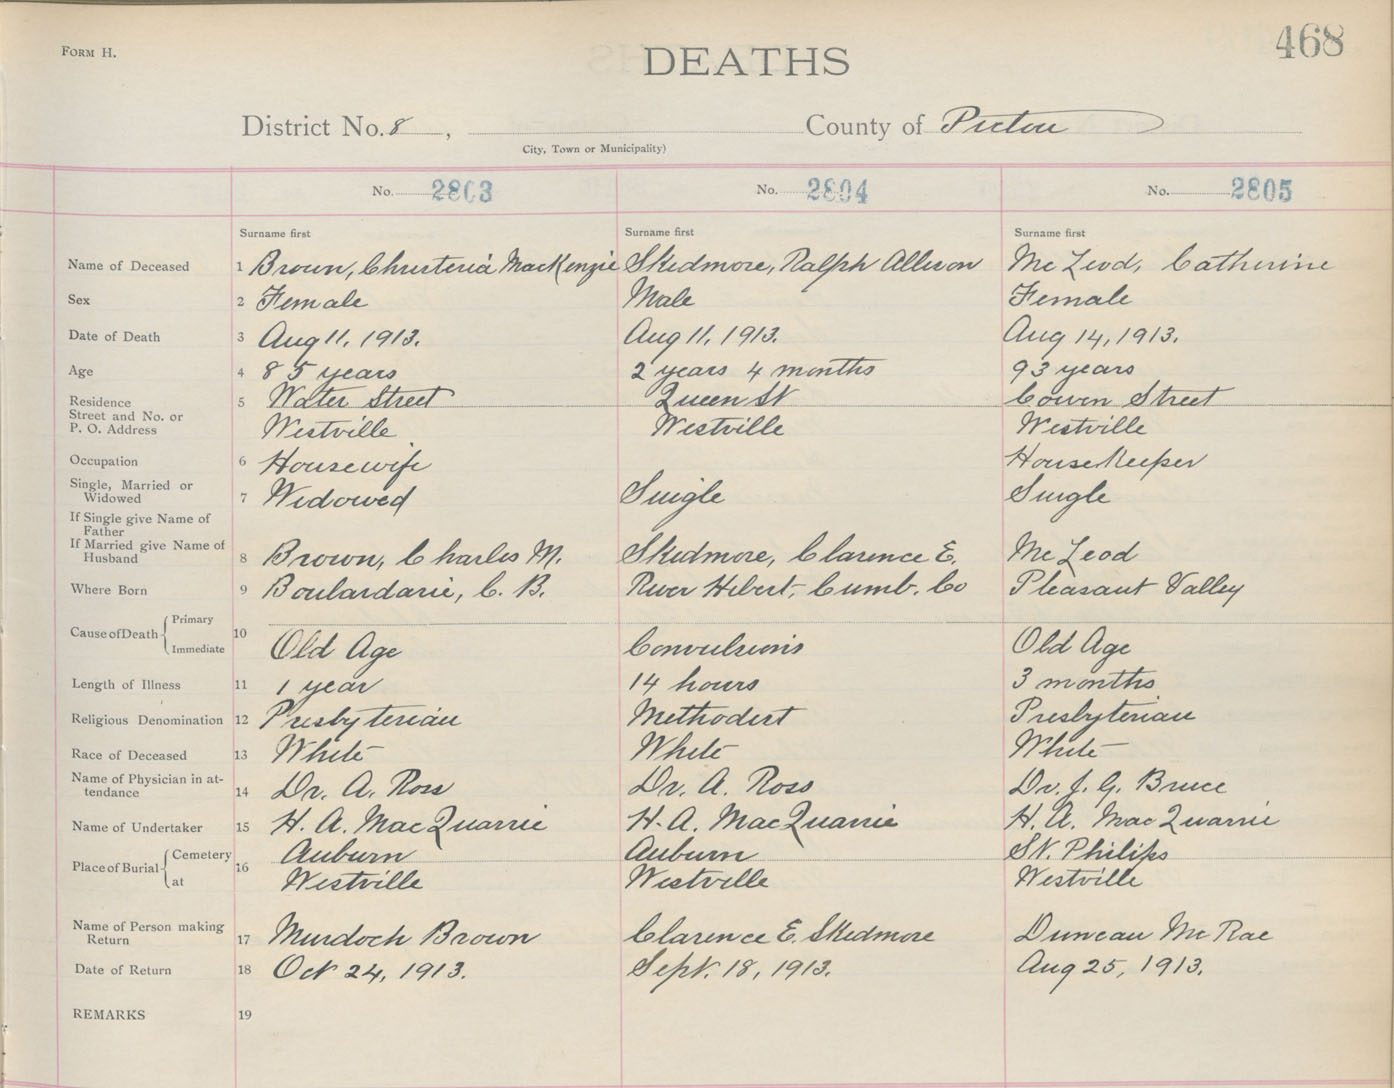 Form H.
468
DEATHS
District No. 8, County of Pictou
City, Town or Municipality)
No. 2803 No. 2804 No. 2805
Surname first Surname first Surname first
Name of Deceased 1 Brown, Christena MacKenzie Skidmore, Ralph Allison McLeod, Catherine
Sex 2 Female Male Female
Date of Death 3 Aug 11, 1913. Aug 11, 1913. Aug 14, 1913.
Age 4 85 years 2 years 4 months 93 years
Residence 5 Water Street Queen St Cowen Street
Street and No. or
P. O. Address Westville Westville Westville
Occupation 6 Housewife HouseKeeper
Single, Married or
Widowed 7 Widowed Single Single
If Single give Name of
Father
If Married give Name of
Husband 8 Brown, Charles M. Skidmore, Clarence E. McLeod
Where Born 9 Boulardarie, C. B. River Hebert, Cumb. Co Pleasant Valley
Cause of Death Primary
10
Immediate Old Age Convulsions Old Age
Length of Illness 11 1 year 14 hours 3 months
Religious Denomination 12 Presbyterian Methodist Presbyterian
Race of Deceased 13 White White White
Name of Physician in at-
tendance 14 Dr. A. Ross Dr. A. Ross Dr. J. G. Bruce
Name of Undertaker 15 H. A. MacQuarrie H. A. MacQuarrie H. A. MacQuarrie
Place of Burial Cemetery 16 Auburn Auburn St. Philips
at Westville Westville Westville
Name of Person making
Return 17 Murdoch Brown Clarence E. Skidmore Duncan McRae
Date of Return 18 Oct 24, 1913. Sept. 18, 1913. Aug 25, 1913.
REMARKS 19